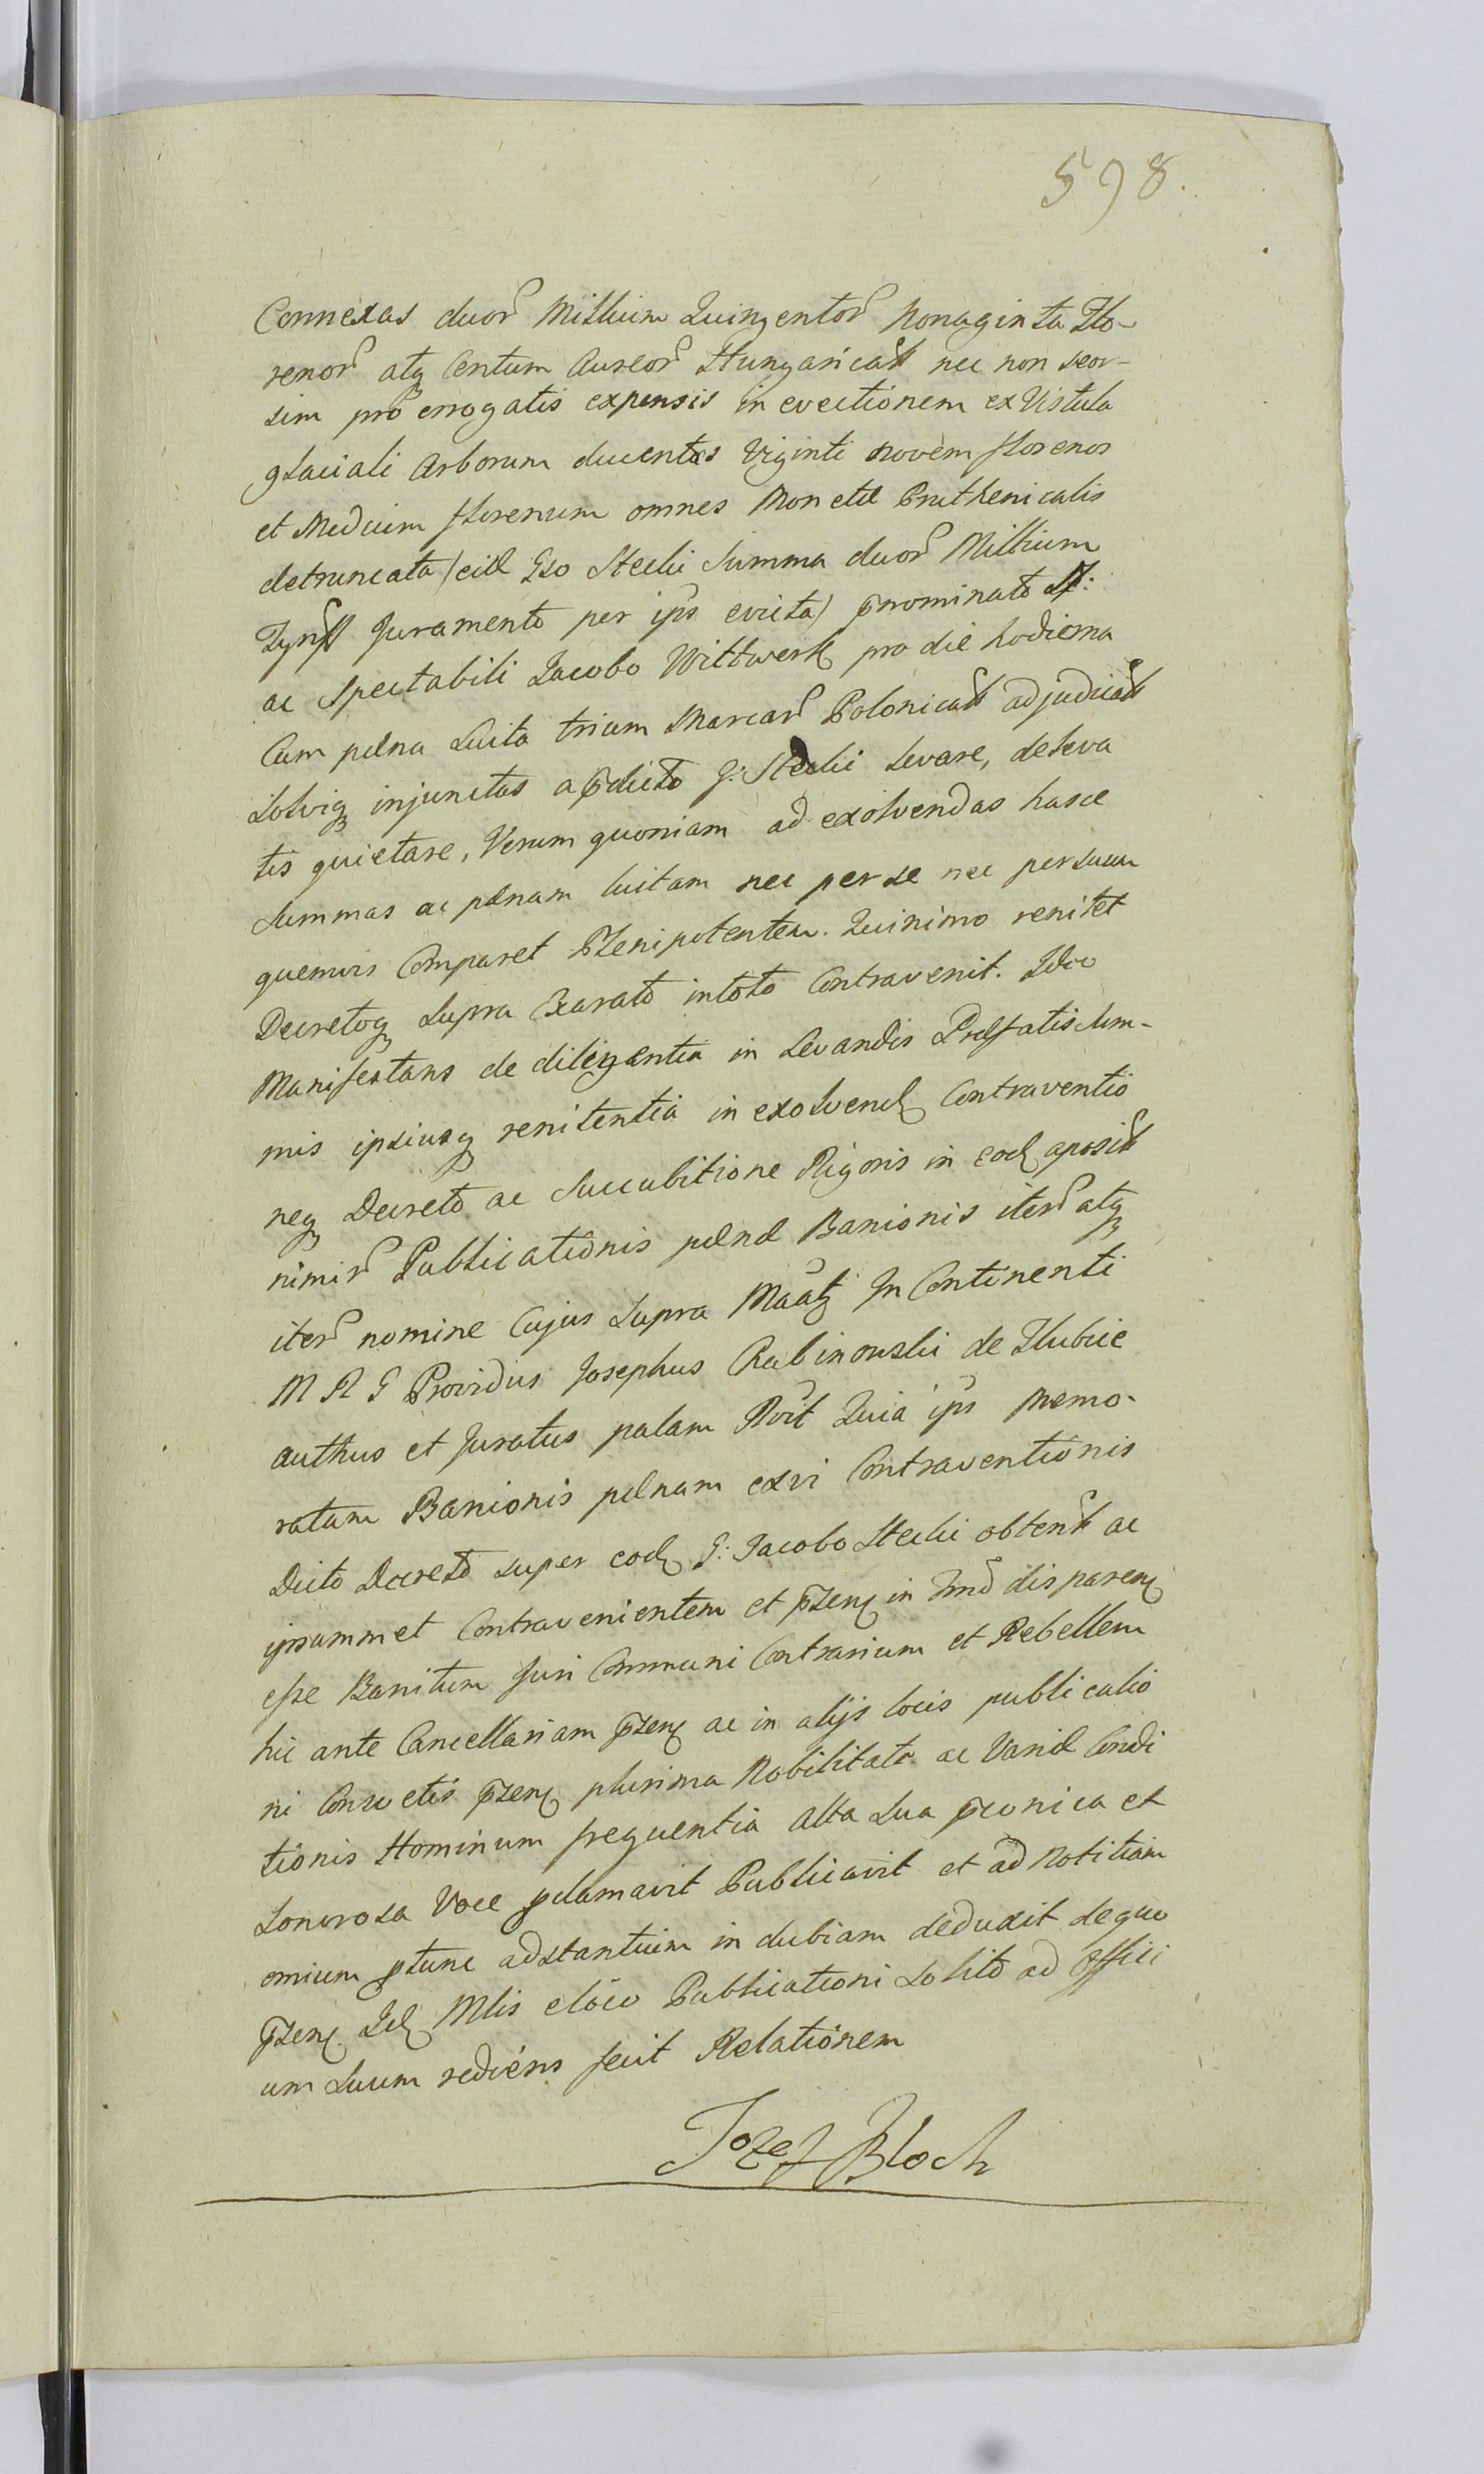 598.
Connexas duor Millium Quingentor Nonaginta Flo-
renor atq Centum Aureor Hungarical nec non seor-
sim pro errogatis expensis in evectionem ex Vistula
glaciali Arborum ducentos Viginti novem florenos
et Medium florenum omnes Monetæ Pruthenicalis
detruncata (eidæ Gso Steche Summa duor Millium
Tynff Juramento per ips evicta) prominato
ac Spectabili Jacobo Wittwerk pro die hodierna
Cum pæna Luita trium Marcar Polonical adjudical
Solviq injunctas a pdicto G: Stechi levare, deleva
tis quietare, Verum quoniam ad exolvendas hasce
Summas ac pænam luitam nec per se nec per suum
quemvis Comparet Plenipotentem. Quinimo renitet
Decretoq Supra Exarato in toto Contravenit. Ideo
Manifestans de diligentia in Levandis Præfatis Sum-
mis ipsiusq renitentia in exolvend Contraventio
neq Decreto ac Succubitione Rigoris in eod aposit
nimir Publicationis pænæ Banionis iter atq
iter nomine Cujus Supra Maatg In Continenti
M R G Providus Josephus Rabinowski de Hubice
authus et Juratus palam Rvit Quia ips Memo-
ratam Banionis pænam ex vi Contraventionis
Dicto Decreto super eod G: Jacobo Stechi obtent ac
ipsummet Contravenientem et pzen in Tmo disparen
esse Banitum Juri Communi Contrarium et Rebellem
hic ante Cancellariam pzen ac in alijs locis publicatio
ni Consvetis pzen plurima Nobilitate ac Variæ Condi
tionis Hominum frequentia Alta Sua pconica et
Sonorosa Voce pclamavit Publicavit et ad Notitiam
omium ptunc adstantium in dubiam deduxit de quo
pzen Id Mlis eloco Publicationi Solito ad Offici
um Suum rediens fecit Relationem
Jozef Bloch